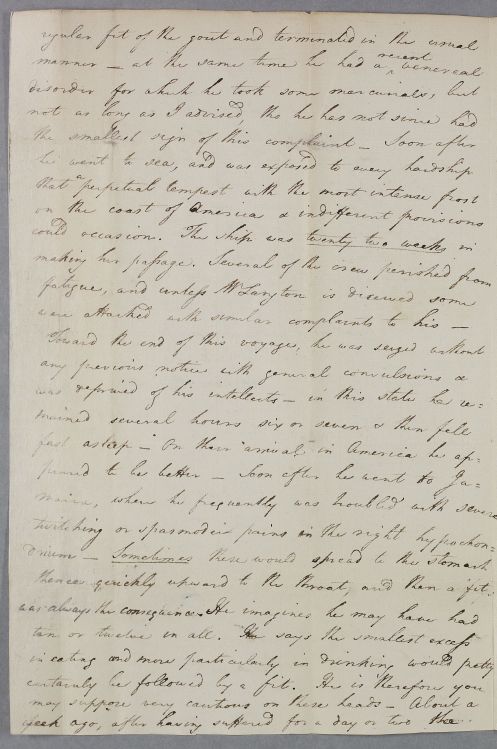 regular fit of the gout and terminated in the usual
manner — at the same time he had a recent venereal
disorder for which he took some mercurials, but
not as long as I advised, tho he has not since had
the smallest sign of this complaint — Soon after
he went to sea, and was exposed to every hardship
that a perpetual tempest with the most intense frost
on the coast of America & indifferent provisions
could occasion. The ship was twenty two weeks in
making her passage. Several of the crew perished from
fatigue, and unless Mr Langton is deceived some
were attacked with similar complaints to his —
Toward the end of this voyage, he was seized without
any previous notice with general convulsions &
was deprived of his intellects — in this state he re-
mained several hours six or seven & then fell
fast asleep — On their arrival in America he ap-
peared to be better — Soon after he went to Ja-
maica, where he frequently was troubled with severe
twitching or spasmodic pains in the right hypochon-
drium — Sometimes these would spread to the stomach
thence quickly upward to the throat, and then a fit
was always the consequence. He imagines he may have had
ten or twelve in all. He says the smallest excess
in eating and more particularly in drinking would pretty
certainly be followed by a fit. He is therefore you
may suppose very cautious on these heads — About a
week ago, after having suffered for a day or two the